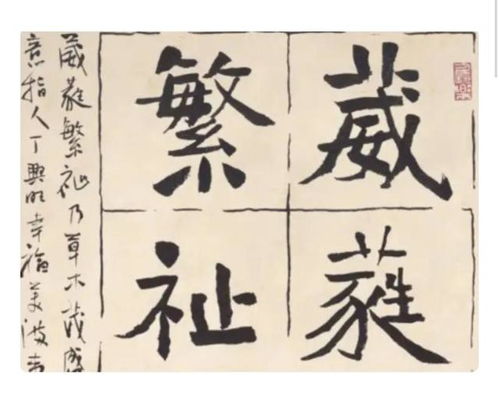 葳蕤
繁祉
葳蕤繁祉乃草木茂盛
意指人丁興旺幸福美滿